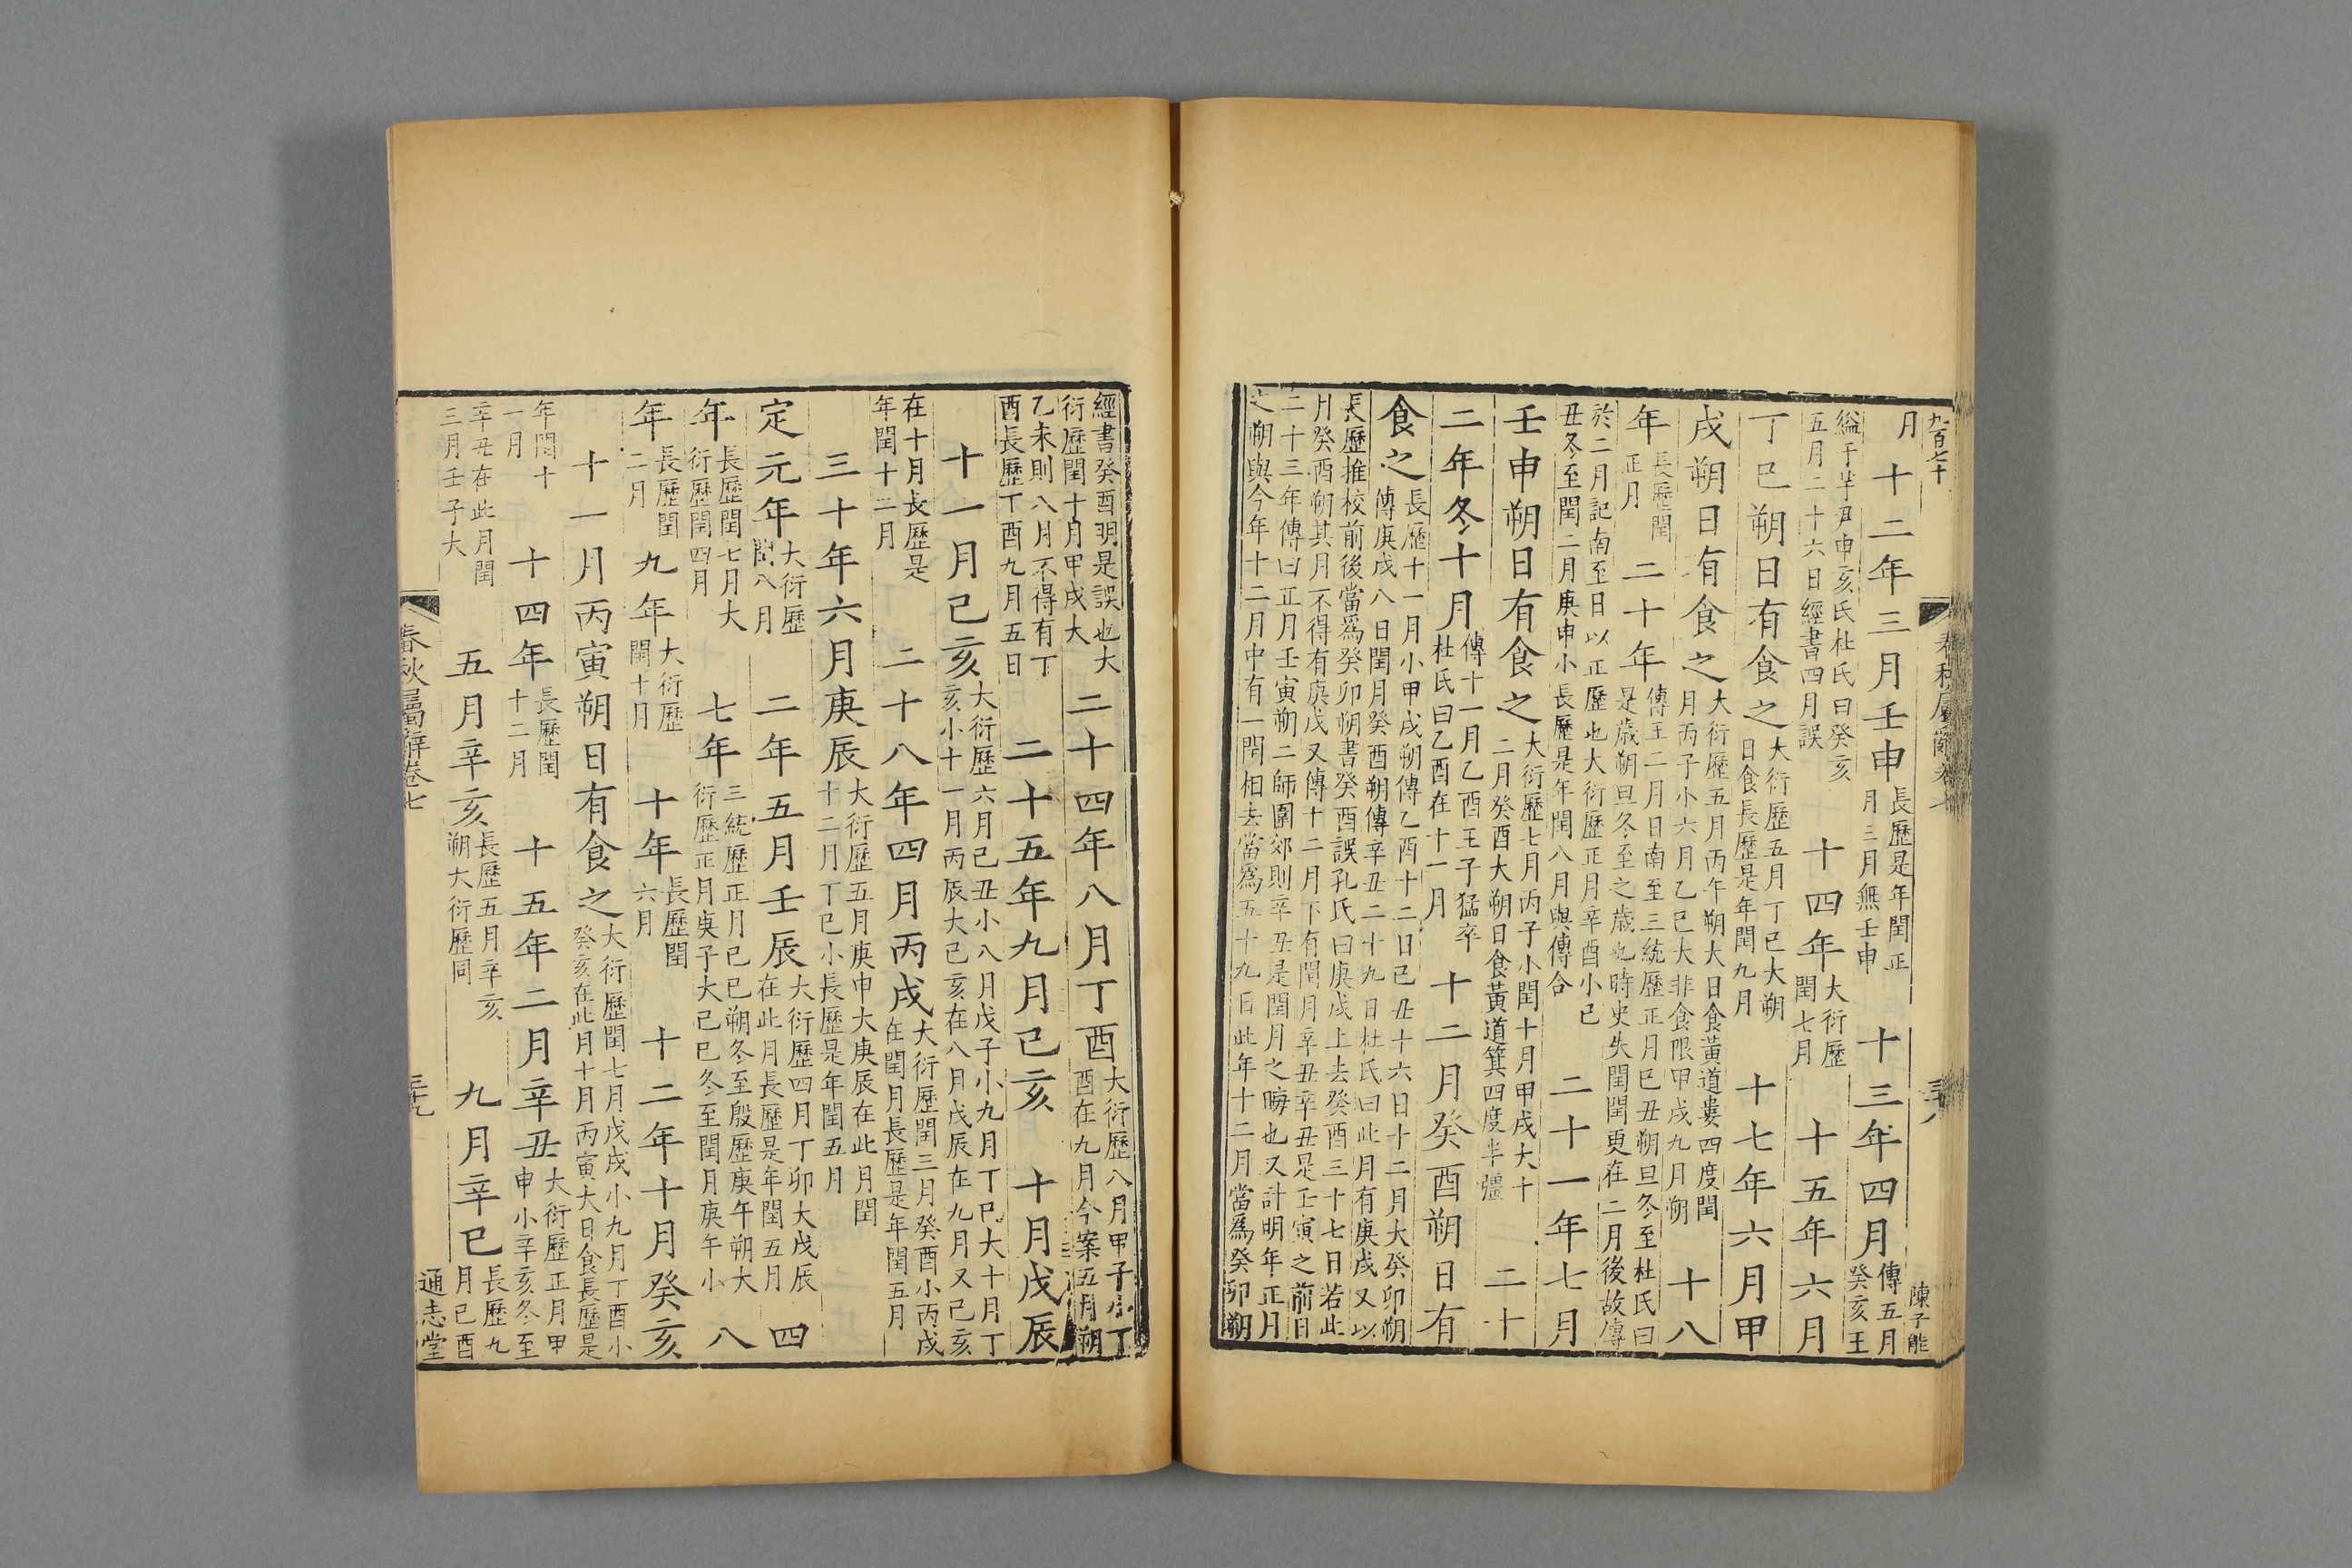 九百七十
春秋屬辭卷七
三十八
陳子能
月 十二年三月壬申 長歷是年閏正月三月無壬申 十三年四月 傳五月癸亥王
縊于芋尹申亥氏杜氏曰癸亥五月二十六日經書四月誤 十四年 大衍歷閏七月 十五年六月
丁巳朔日有食之 大衍歷五月丁巳大朔日食長歷是年閏九月 十七年六月甲
戌朔日有食之 大衍歷五月丙午朔大日食黃道婁四度閏月丙子小六月乙巳大非食限甲戌九月朔 十八
年 長歷閏正月 二十年 傳王二月日南至三統歷正月己丑朔旦冬至杜氏曰是歲朔旦冬至之歲也時史失閏閏更在二月後故傳
於二月記南至日以正歷也大衍歷正月辛酉小己丑冬至閏二月庚申小長歷是年閏八月與傳合 二十一年七月
壬申朔日有食之 大衍歷七月丙子小閏十月甲戌大十二月癸酉大朔日食黃道箕四度半彊 二十
二年冬十月 傳十一月乙酉王子猛卒杜氏曰乙酉在十一月 十二月癸酉朔日有
食之 長歷十一月小甲戌朔傳乙酉十二日己丑十六日十二月大癸卯朔傳庚戌八日閏月癸酉朔傳辛丑二十九日杜氏曰此月有庚戌又以
長歷推校前後當爲癸卯朔書癸酉誤孔氏曰庚戌上去癸酉三十七日若此月癸酉朔其月不得有庚戌又傳十二月下有閏月辛丑辛丑是壬寅之前日
二十三年傳曰正月壬寅朔二師圍郊則辛丑是閏月之晦也又計明年正月之朔與今年十二月中有一閏相去當爲五十九日此年十二月當爲癸卯朔
經書癸酉明是誤也大衍歷閏十月甲戌大 二十四年八月丁酉 大衍歷八月甲子小丁酉在九月今案五月朔
乙未則八月不得有丁酉長歷丁酉九月五日 二十五年九月己亥 十月戊辰
十一月己亥 大衍歷六月己丑小八月戊子小九月丁巳大十月丁亥小十一月丙辰大己亥在八月戊辰在九月又己亥
在十月長歷是年閏十二月 二十八年四月丙戌 大衍歷閏三月癸酉小丙戌在閏月長歷是年閏五月
三十年六月庚辰 大衍歷五月庚申大庚辰在此月閏十二月丁巳小長歷是年閏五月
定元年 大衍歷閏八月 二年五月壬辰 大衍歷四月丁卯大戊辰在此月長歷是年閏五月 四
年 長歷閏七月大衍歷閏四月 七年 三統歷正月己巳朔冬至殷歷庚午朔大衍歷正月庚子大己巳冬至閏月庚午小 八
年 長歷閏二月 九年 大衍歷閏十月 十年 長歷閏六月 十二年十月癸亥
十一月丙寅朔日有食之 大衍歷閏七月戊戌小九月丁酉小癸亥在此月十月丙寅大日食長歷是
年閏十一月 十四年 長歷閏十二月 十五年二月辛丑 大衍歷正月甲申小辛亥冬至
辛丑在此月閏三月壬子大 五月辛亥 長歷五月辛亥朔大衍歷同 九月辛巳 長歷九月己酉
春秋屬辭卷七
三十九
通志堂